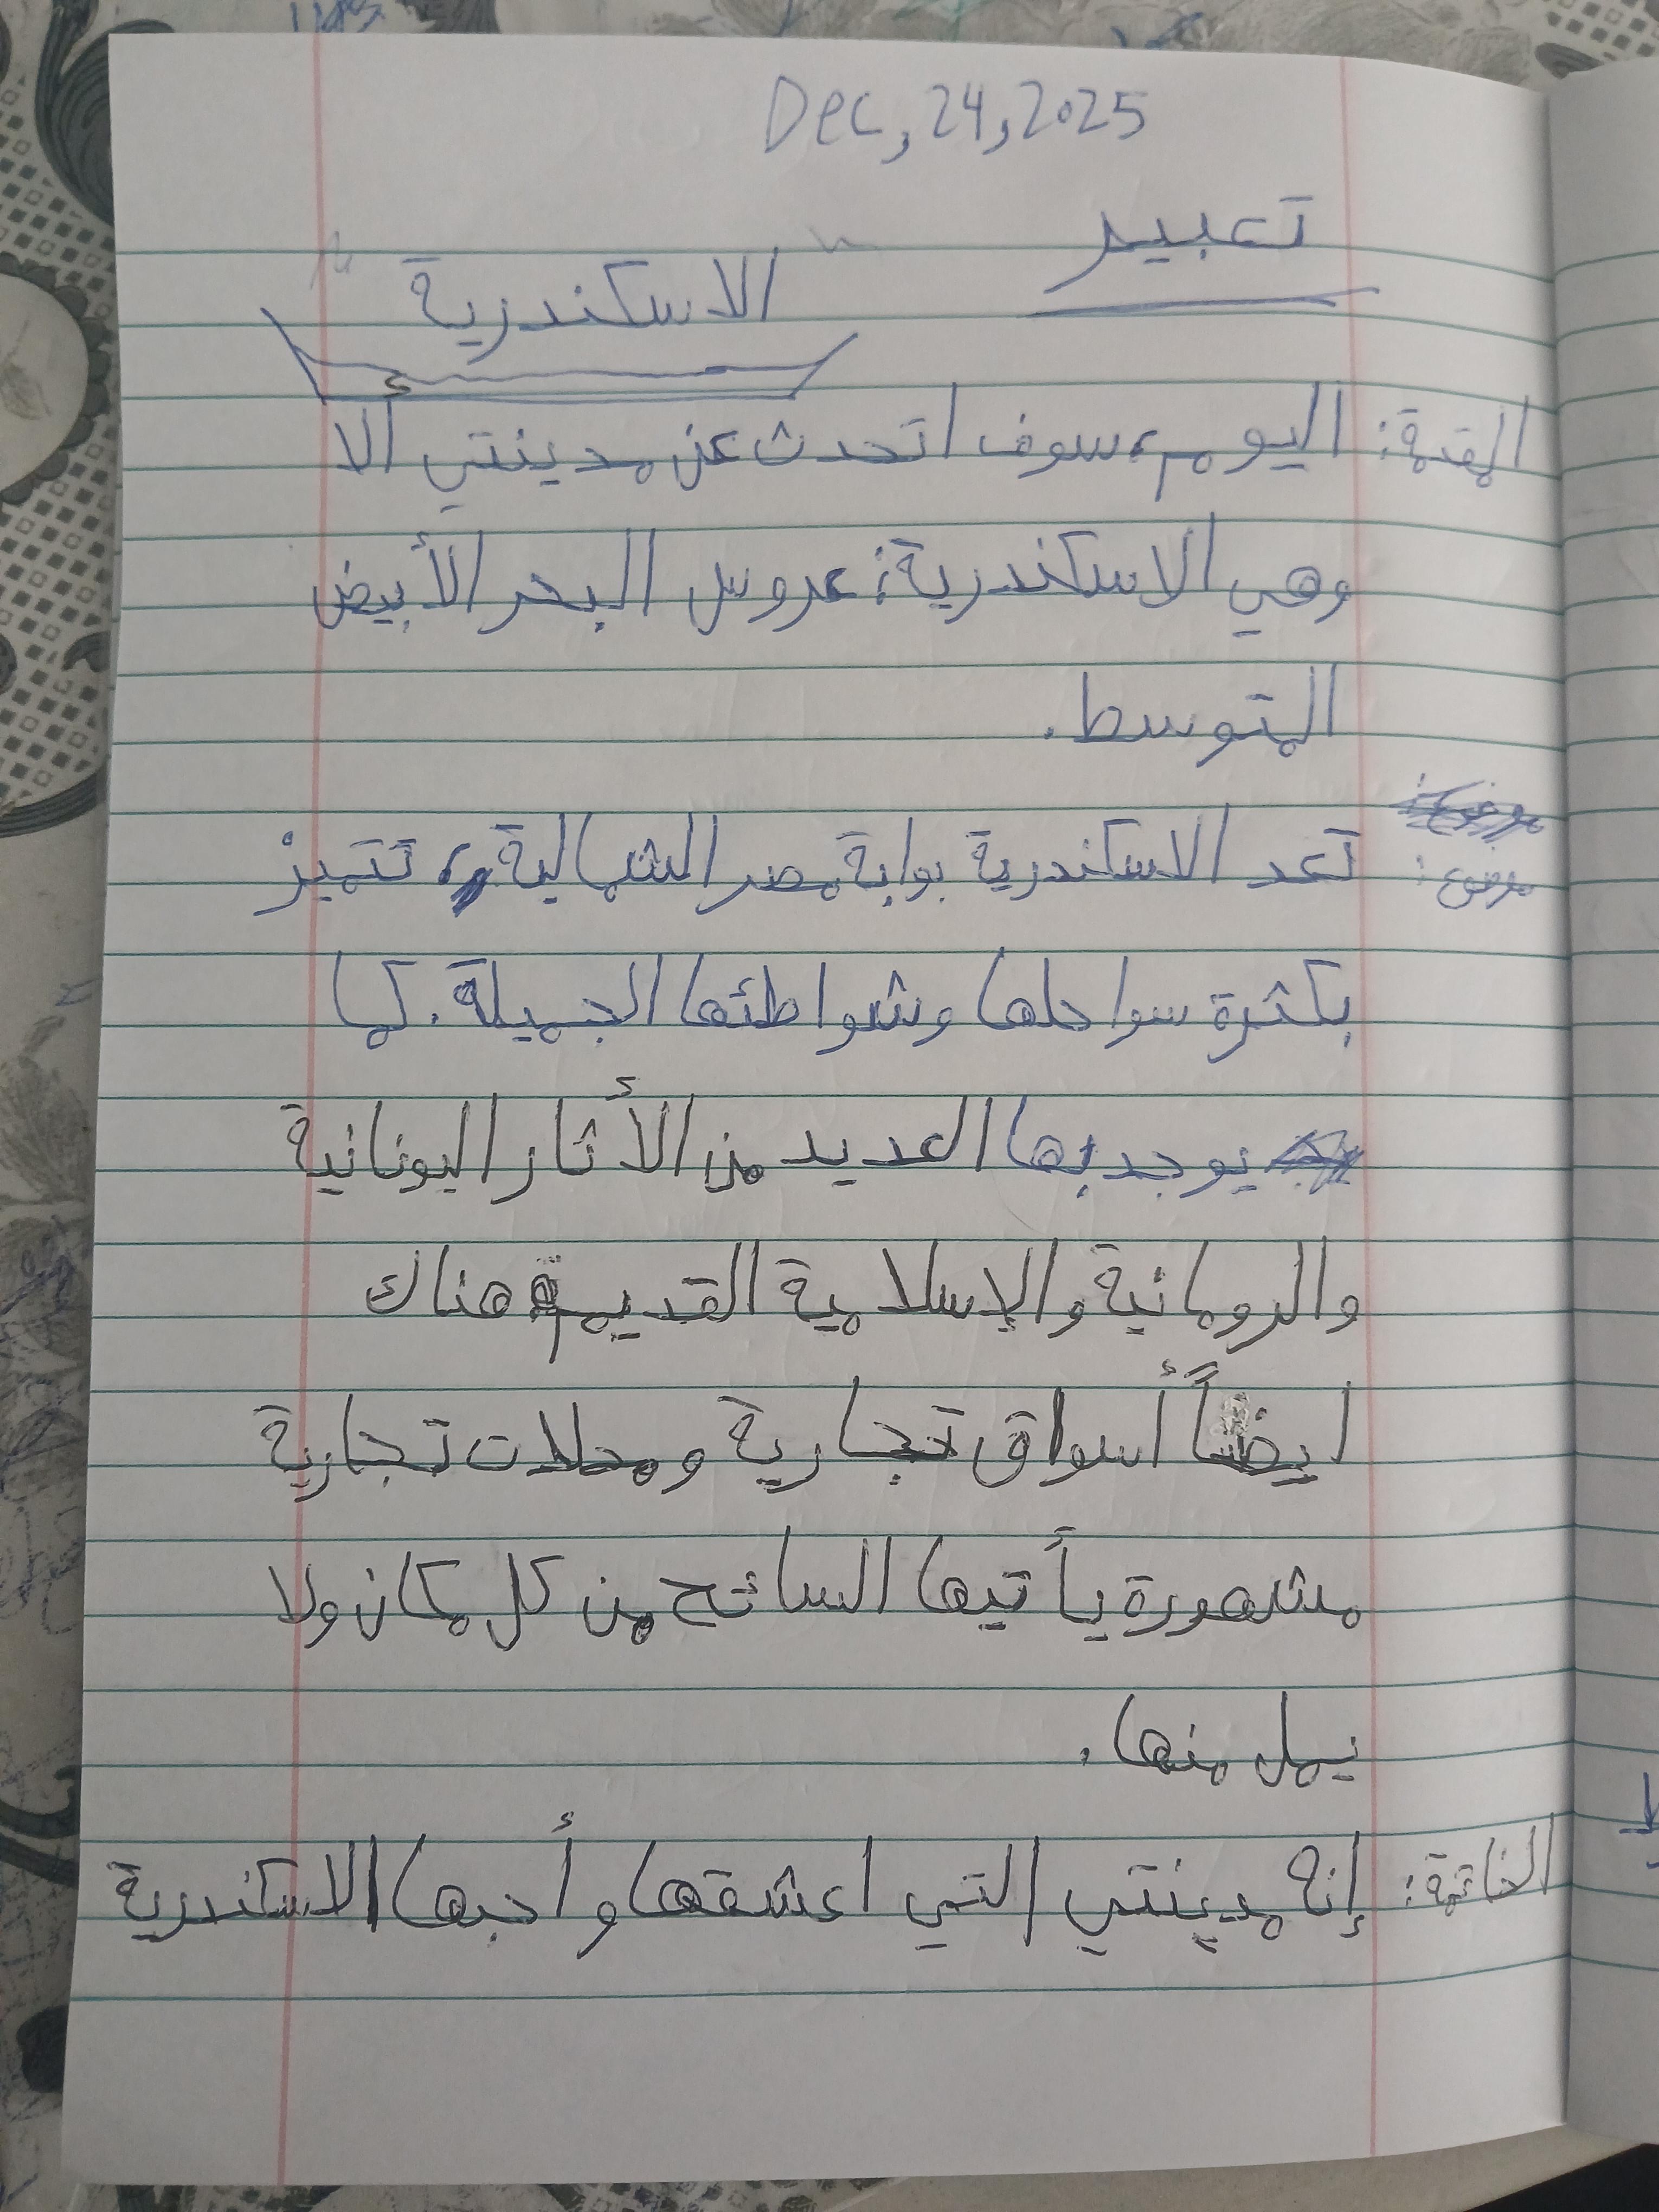 Dec, 24, 2025
تعبير
الاسكندرية
المقدمة: اليوم، سوف اتحدث عن مدينتي ألا
وهي الاسكندرية؛ عروس البحر الأبيض
المتوسط.
موضوع: تعد الاسكندرية بوابة مصر الشمالية، تتميز
بكثرة سواحلها وشواطئها الجميلة. كما
يوجد بها العديد من الأثار اليونانية
والرومانية والإسلامية القديمة هناك
ايضاً أسواق تجارية ومحلات تجارية
مشهورة يأتيها السائح من كل مكان ولا
يمل منها.
الخاتمة: إنه مدينتي التي اعشقها وأحبها الاسكندرية